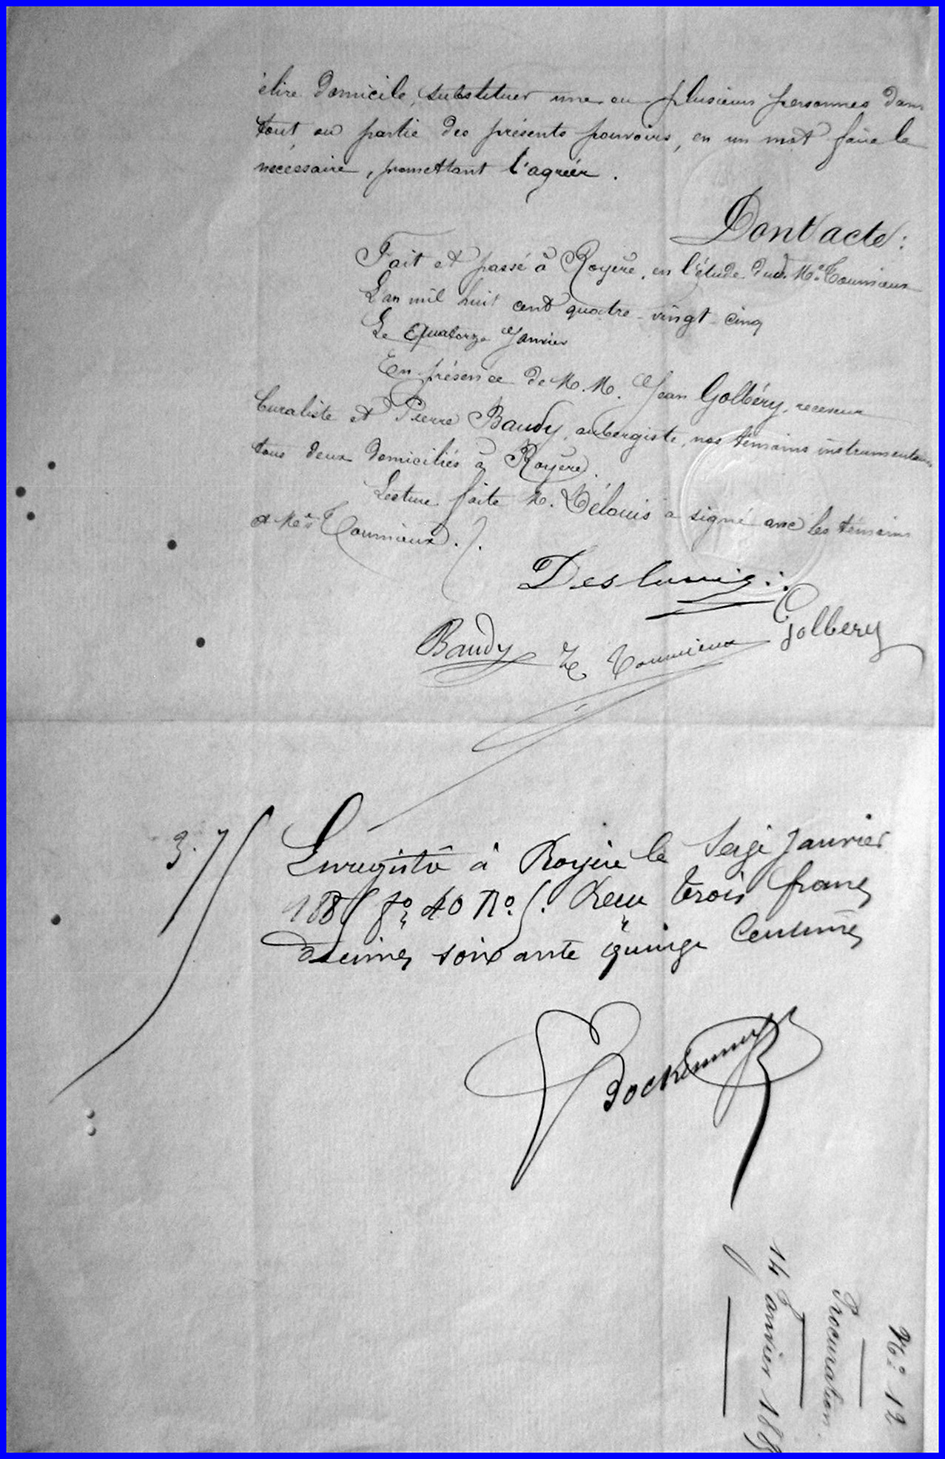 élire domicile, substituer une ou plusieurs personnes dans
tout ou partie des présents pouvoirs, en un mot faire le
nécessaire, promettant l'agréer.
Dont acte:
Fait et passé à Royère, en l'étude dud. Me Toumieux
L'an mil huit cent quatre-vingt-cinq
Le Quatorze Janvier
En présence de M.M. Jean Golbéry, receveur
buraliste et Pierre Baudy, aubergiste, nos témoins instrumentaires
tous deux domiciliés à Royère.
Lecture faite M. Délouis a signé avec les témoins
et Me Toumieux ./.
Baudy Toumieux Golbery
3.75
Enregistré à Royère le Seize Janvier
1885 fo 40 No 5. Reçu trois francs
Décimes soixante quinze Centimes
No 12
Procuration.
14 Janvier 188